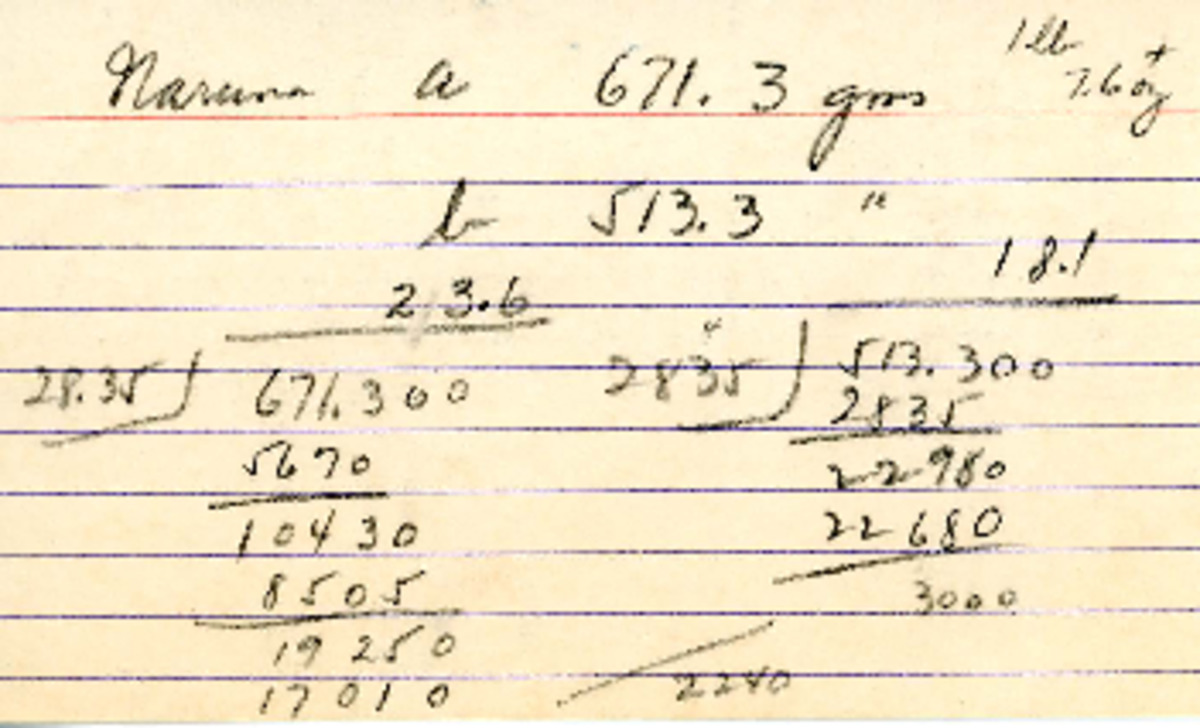 Naruna a 671.3 gms 1 lb
7.6+ oz
b 513.3 "
18.1
23.6
28.35 ) 671.300 2835 ) 513.300
5670 2835
10430 22980
8505 22680
19250 3000
17010 2240